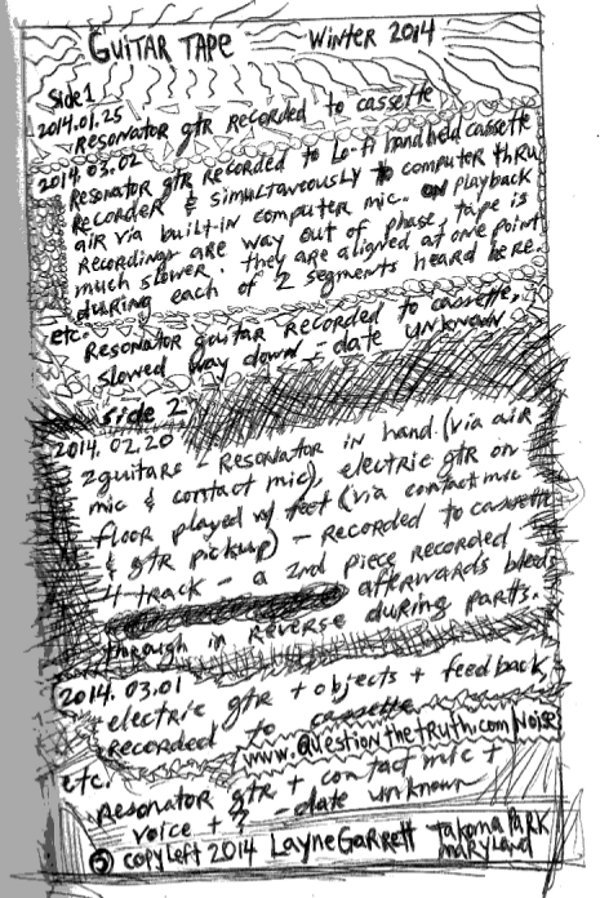 GUITAR TAPE WINTER 2014
Side 1
2014.01.25
RESONATOR gtR RECORDED to cassette
2014.03.02
RESONATOR gtR RECORDED to Lo-fi handheld cassette
RECORDER & simultaneously to computer thRu
aiR via built-in computer mic. ON playback
RecoRdings aRe way out of phase, tape is
much slower. they are aligned at one point
during each of 2 segments heard here.
etc.
Resonator guitar RecoRded to cassette,
slowed way down - date unknown
side 2
2014.02.20
2guitars - Resonator in hand (via aiR
mic & contact mic), electric gtR on
floor played w/ feet (via contact mic
& gtR pickup) - RecoRded to cassette
4-track - a 2nd piece RecoRded
afterwards bleeds
through in Reverse during parts.
2014.03.01
electric gtR + objects + feedback,
RecoRded to cassette
www.QuestionthetRuth.com/Noise
etc.
Resonator gtR + contact mic +
voice + ? - date unknown
copyLeft 2014 Layne Garrett Takoma Park
Maryland